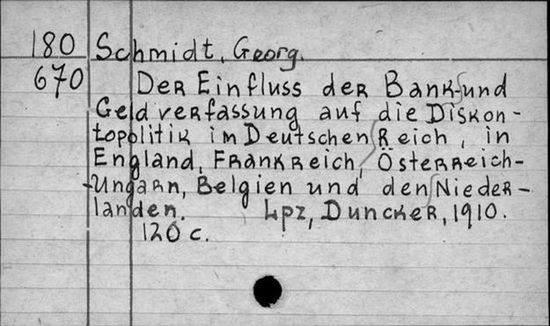 180 Schmidt, Georg.
670 Der Einfluss der Bank- und
Geldverfassung auf die Diskon-
topolitik im Deutschen Reich, in
England, Frankreich, Österreich-
Ungarn, Belgien und den Nieder-
landen. Lpz, Duncker, 1910.
120 c.